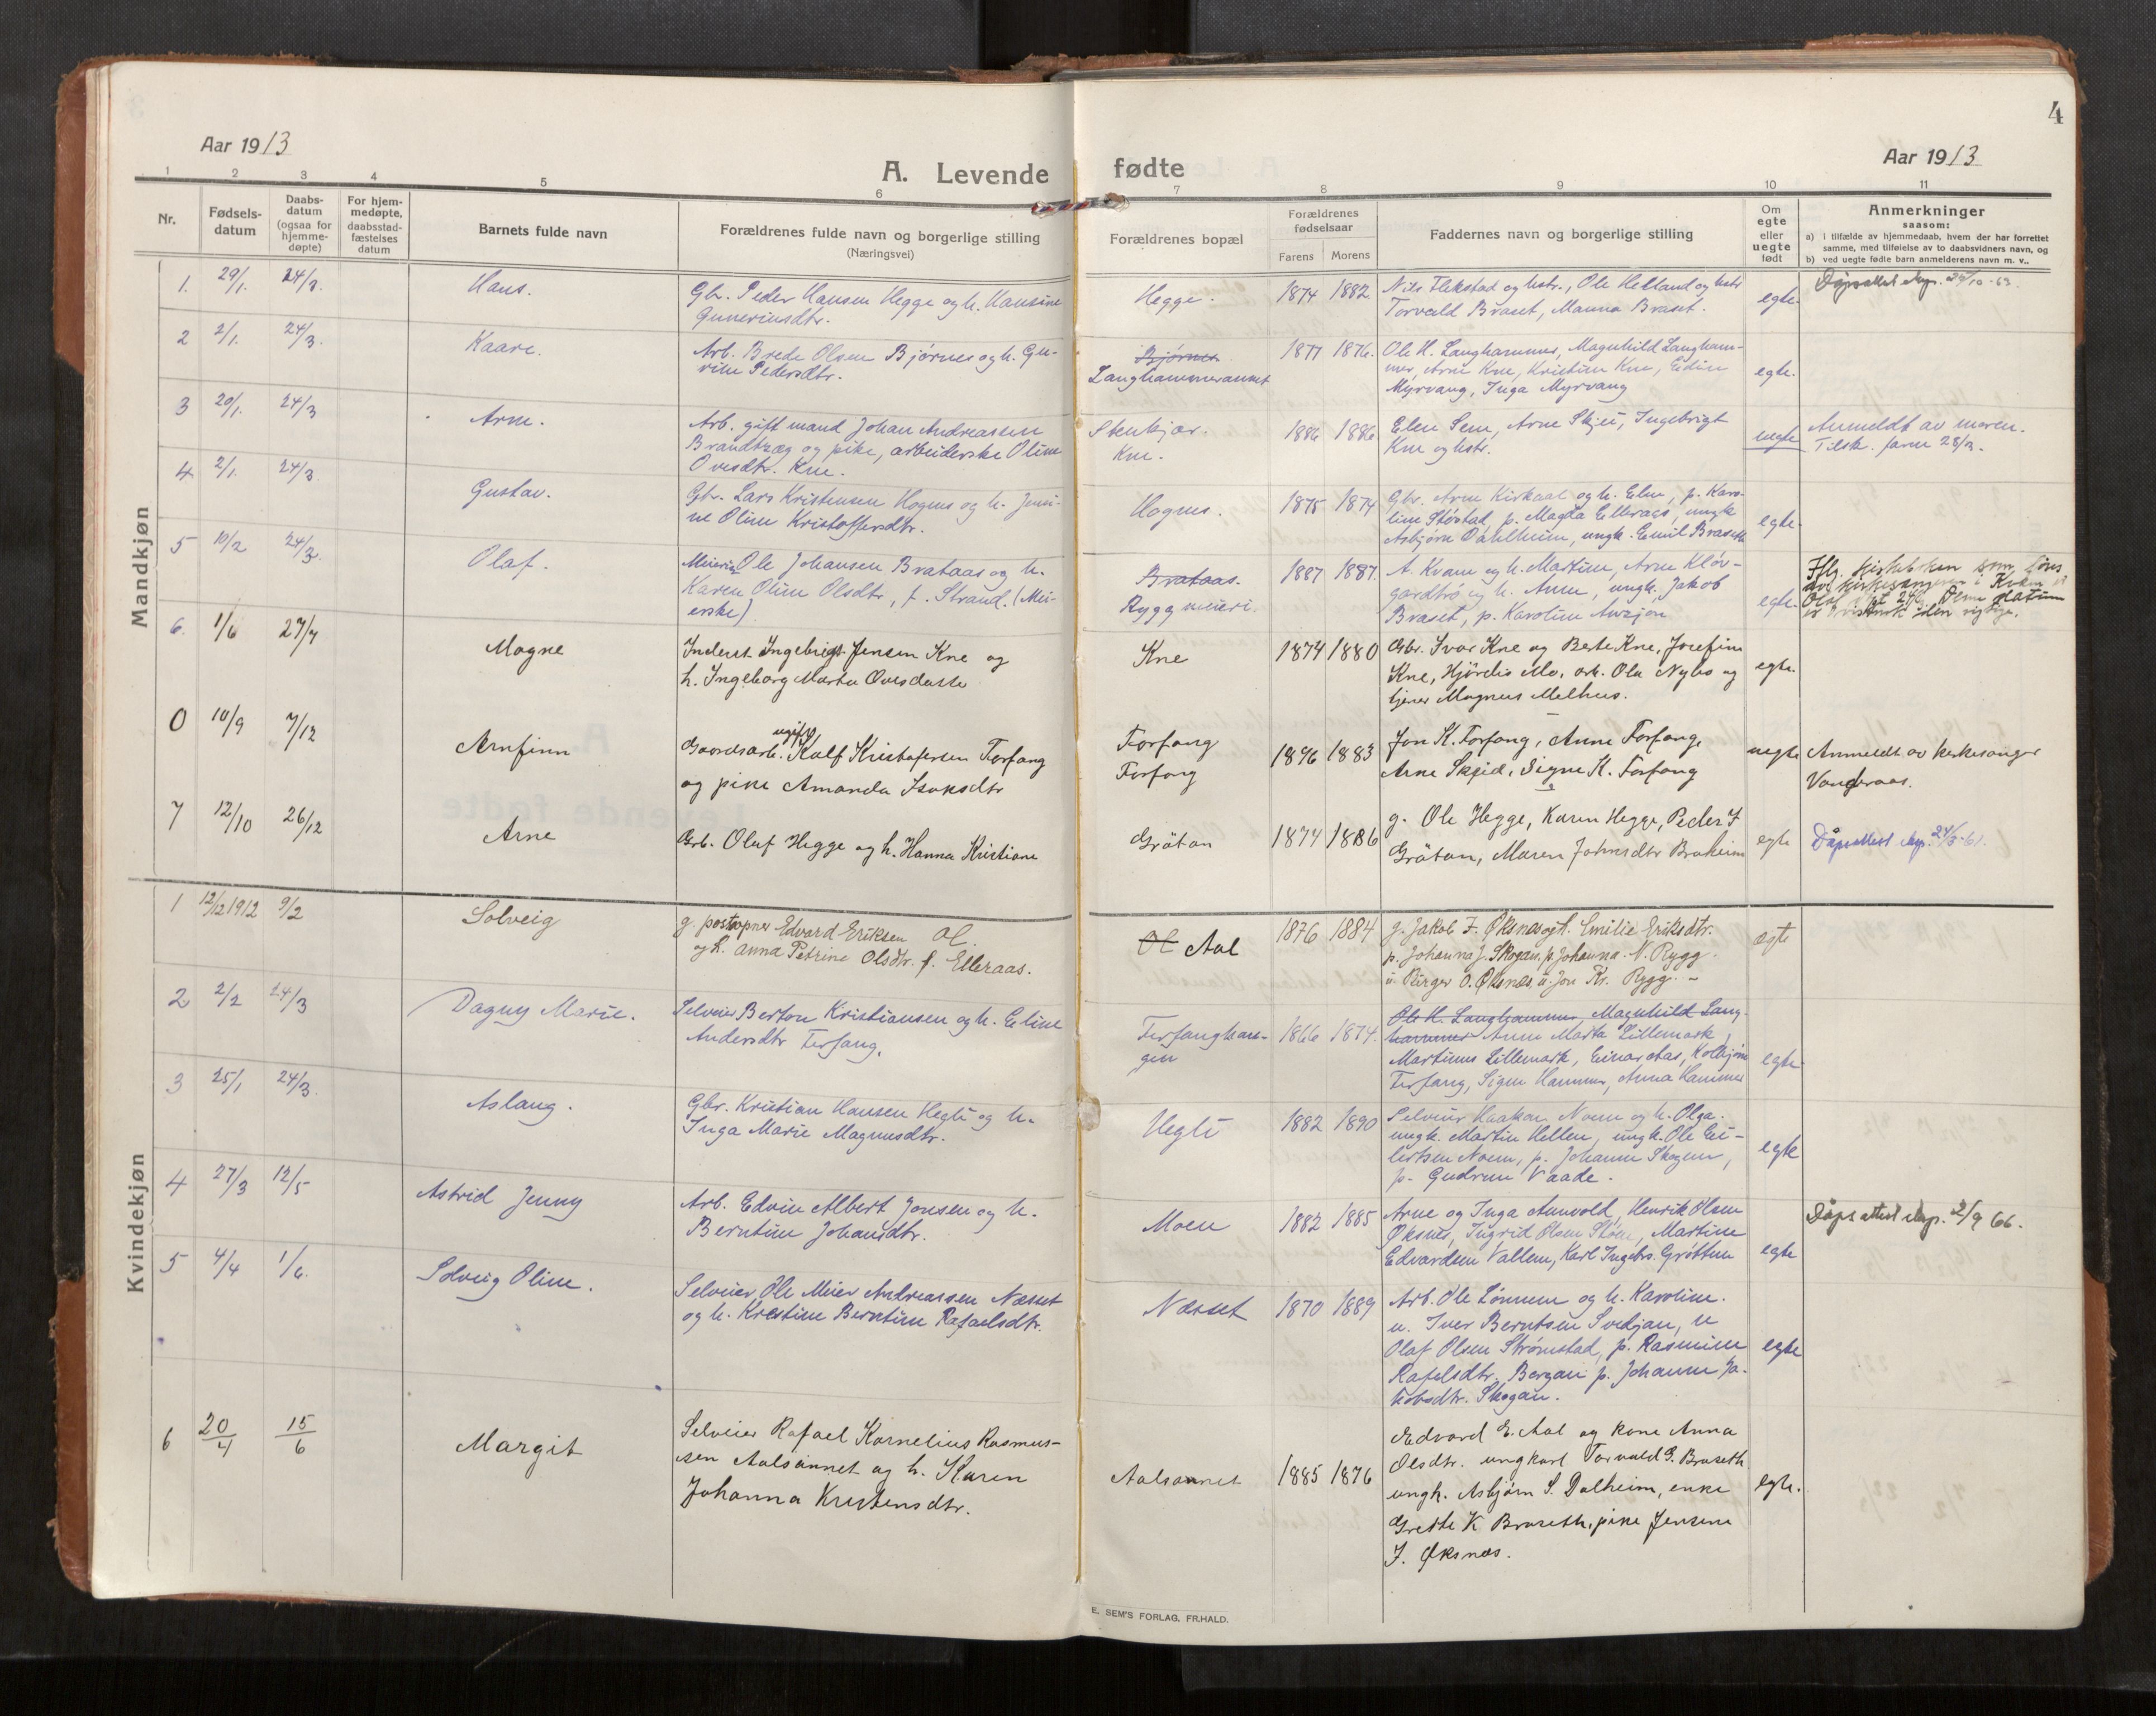 4
Aar 1913
A. Levende fødte
Aar 1913
1 2 3 4 5 6 7 8 9 10 11
Nr.
Fødsels-
datum
Daabs-
datum
(ogsaa for
hjemme-
døpte)
For hjem-
medøpte,
daabsstad-
fæstelses
datum
Barnets fulde navn
Forældrenes fulde navn og borgerlige stilling
(Næringsvei)
Forældrenes bopæl
Forældrenes
fødselsaar
Farens Morens
Faddernes navn og borgerlige stilling
Om
egte
eller
uegte
født
Anmerkninger
saasom:
a) i tilfælde av hjemmedaab, hvem der har forrettet
samme, med tilføielse av to daabsvidners navn, og
b) ved uegte fødte barn anmelderens navn m. v..
Mandkjøn
1. 29/1. 24/3. Hans.
Gbr. Peder Hansen Hegge og h. Hansine
Gunneriusdtr.
Hegge. 1874 1882
Nils Flekstad og hstr., Ole Helland og hstr
Torvald Braset, Manna Braset.
egte.
Dåpsattest eksp. 25/10-63.
2 2/1. 24/3. Kaare.
Arb. Brede Olsen Bjørnes og h. Gu-
rine Pedersdtr.
Bjørnes
Langhammeraunet
1877 1876.
Ole H. Langhammer, Magnhild Langham-
mer, Arne Kne, Kristine Kne, Edin
Myrvang, Inga Myrvang
egte.
3 20/1. 24/3 Arne.
Arb. gift mand Johan Andreassen
Brandtzæg og pike, arbeiderske Oline
Ovesdtr. Kne.
Stenkjær.
Kne.
1886 1886
Elen Sem, Arne Skjei, Ingebrigt
Kne og hstr.
uegte
Anmeldt av moren.
Tilsk. faren 28/3.
4 2/1. 24/3 Gustav.
Gbr. Lars Kristensen Hognes og h. Jensi-
ne Oline Kristoffersdtr.
Hognes. 1875 1874
Gbr. Arne Kirkaal og h. Elen, p. Karo-
line Støstad, p. Magda Elleraas, ungk
Asbjørn Dahlheim, ungk. Emil Braseth
egte.
5 10/2 24/3. Olaf.
Meierist Ole Johansen Brataas og h.
Karen Oline Olsdtr, f. Strand. (Mei-
erske)
Brataas.
Rygg meieri.
1887 1887.
A. Kvam og h. Martine, Arne Kløv-
gardtrø og h. Anne, ungk. Jakob
Braset, p. Karoline Awzjon
egte.
6. 1/6 27/7 Magne
Inderst Ingebrigt Jensen Kne og
h. Ingeborg Marta Ovesdatte
Kne 1874 1880
Gbr. Ivar Kne og Berte Kne, Josefine
Kne, Hjördis Mo, arb. Ola Nybo og
tjener Magnus Melhus.
egte.
0 10/9 7/12 Arnfinn
ugift
Gaardsarb. Kolf Kristofersen Forfang
og pike Amanda Isaksdtr
Forfang
Forfang
1896 1883
Jon K. Forfang, Anne Forfang,
Arne Skjid, Signe K. Forfang
uegte
Anmeldt av kirkesanger
Vanderaas.
7 12/10 26/12 Arne
Grb. Olaf Hegge og h. Hanna Kristiane
Gråtan 1874 1886
g. Ole Hegge, Karen Hegge, Peder J
Gråtan, Maren Johnsdtr Braheim
egte
Dåpsattest eksp. 24/3-61.
Kvindekjøn
1 12/12 1912 9/2 Solveig
g. postopner Edvard Eriksen Ol.
og h. Anna Petrine Olsdtr. f. Elleraas.
Ol Aal
1876 1884
g. Jakob J. Øksnes og h. Emilie Eriksdtr.
p. Johanna J. Skogan. p. Johanna N. Rygg.
u. Birger O. Øksnes, u. Jon Kr. Rygg.
ægte
2 2/2 24/3 Dagny Marie.
Selveier Berton Kristiansen og h. Eline
Andersdtr Forfang.
Forfanghau-
gen
1866 1874.
Ole H. Langhammer, Magnhild Lang-
hammer Anne Marta Lillemark,
Martinus Lillemark, Einar Aas, Kolbjørn
Forfang, Sigen Hammer, Anna Hammer
egte
3 25/1 24/3. Aslaug.
Gbr. Kristian Hansen Hegli og h.
Inga Marie Magnusdtr.
Hegli 1882 1890
Selveier Haakon Noem og h. Olga.
ungk. Martin Hellen, ungk. Ole Ei-
lertsen Noem, p. Johanne Skogan,
p. Gudrun Vaade.
egte
4 27/3 12/5 Astrid Jenny
Arb. Edvin Albert Jonsen og h.
Berntine Johansdtr.
Moen 1882 1885
Arne og Inga Aunvold, Henrik Olsen
Øksnes, Ingrid Olsen Støen, Martine
Edvardsen Vallem, Karl Ingebr. Grøttum
egte
Dåpsattest eksp. 2/9 66.
5 4/4 1/6. Solveig Oline.
Selveier Ole Meier Andreassen Næsset
og h. Kristine Berntine Rafaelsdtr.
Næsset 1870 1889
Arb. Ole Lønnem og h. Karoline.
u. Iver Berntsen Svedjan, u
Olaf Olsen Strømstad, p. Rasmine
Rafelsdtr. Bergan p. Johanne Ja-
kobsdtr. Skogan.
egte
6 20/4 15/6 Margit
Selveier Rafael Kornelius Rasmus-
sen Aalsaunet og h. Karen
Johanna Kristensdtr.
Aalsaunet 1885 1876
Edvard E. Aal og kone Anna
Olsdtr. ungkarl Torvald P. Braseth
ungk. Asbjørn S. Dalheim, enke
Grethe K Braseth, pike Jensine
J. Øksnes.
egte.
E. SEM'S FORLAG, FR.HALD.